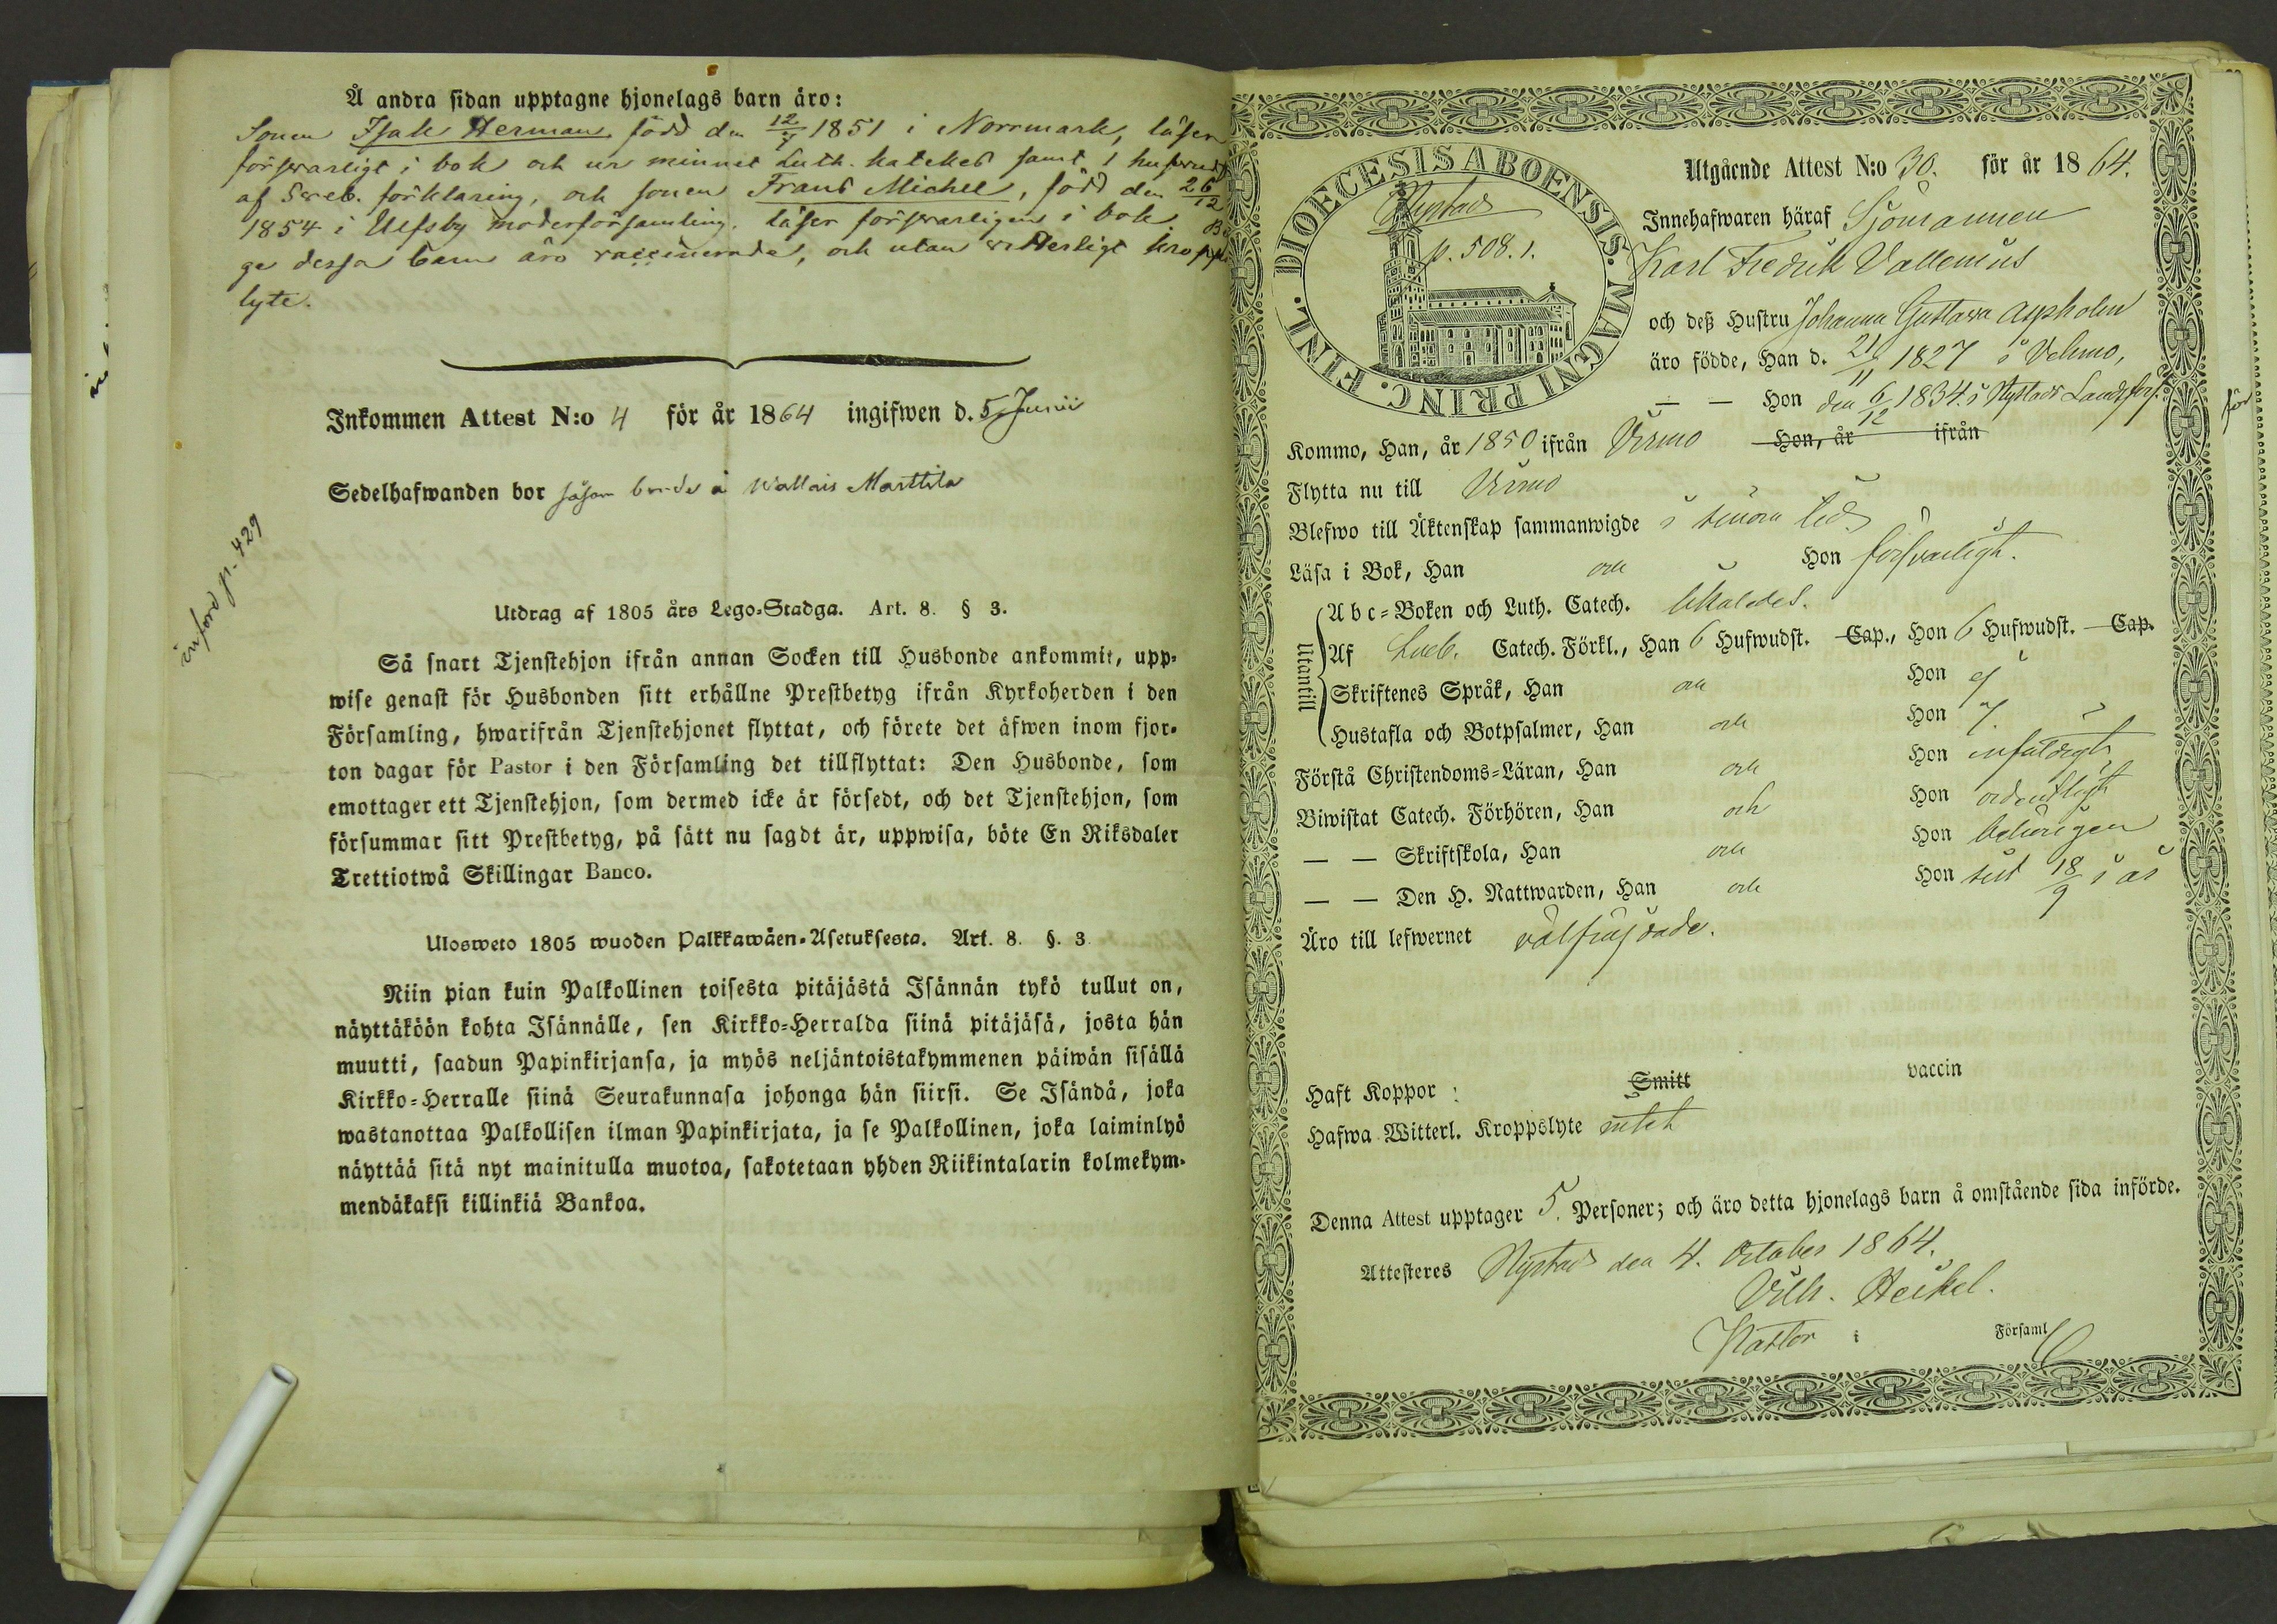 Å andra sidan upptagne hjonelags barn äro:
Sonen Isak Herman född den 12/4 1851 i Norrmark, läser
försvarligt i bok och ur minnet Luth. kateches samt 1 hufvudst
af Sveb. förklaring, och sonen Frans Michel, född den 26/12
1854 i Ulfsby moderförsamling. läser försvarligen i bok Bä
ge dessa barn äro vaccinerade, och utan vitterligt kropps
lyte.
Inkommen Attest N:o 4 för år 1864 ingifwen d. 5 Junii
Sedelhafwanden bor såsom bonde å Wallais Marttila
införd p. 429
Utdrag af 1805 års Lego-Stadga. Art. 8. § 3.
Så snart Tjenstehjon ifrån annan Socken till Husbonde ankommit, upp-
wise genast för Husbonden sitt erhållne Prestbetyg ifrån Kyrkoherden i den
Församling, hwarifrån Tjenstehjonet flyttat, och förete det äfwen inom fjor-
ton dagar för Pastor i den Församling det tillflyttat: Den Husbonde, som
emottager ett Tjenstehjon, som dermed icke är försedt, och det Tjenstehjon, som
försummar sitt Prestbetyg, på sätt nu sagdt är, uppwisa, böte En Riksdaler
Trettiotwå Skillingar Banco.
Ulosweto 1805 wuoden Palkkawäen-Asetuksesta. Art. 8. §. 3.
Niin pian kuin Palkollinen toisesta pitäjästä Isännän tykö tullut on,
näyttäköön kohta Isännälle, sen Kirkko-Herralda siinä pitäjäsä, josta hän
muutti, saadun Papinkirjansa, ja myös neljäntoistakymmenen päiwän sisällä
Kirkko-Herralle siinä Seurakunnasa johonga hän siirsi. Se Isändä, joka
wastanottaa Palkollisen ilman Papinkirjata, ja se Palkollinen, joka laiminlyö
näyttää sitä nyt mainitulla muotoa, sakotetaan yhden Riikintalarin kolmekym-
mendäkaksi killinkiä Bankoa.
DIOECESIS ABOENSIS. MAGNI PRINC. FINL.
Nystad
p. 508.1.
Utgående Attest N:o 30. för år 1864.
Innehafwaren häraf Sjömannen
Karl Fredrik Vallenius
och deß Hustru Johanna Gustava Aspholm
äro födde, Han d. 21/11 1827 i Vehmo,
— — Hon den 6/12 1834. i Nystads Landsförs.
Kommo, Han, år 1850 ifrån Virmo Hon, år ifrån
Flytta nu till Virmo
Blefwo till Äktenskap sammanwigde i laga tid
Läsa i Bok, Han och Hon försvarligt.
Utantill
Abc-Boken och Luth. Catech. likaledes.
Af Sveb. Catech. Förkl., Han 6 Hufwudst. Cap., Hon 6 Hufwudst. Cap.
Skriftenes Språk, Han och Hon ej
Hustafla och Botpsalmer, Han och Hon ej.
Förstå Christendoms-Läran, Han och Hon enfaldigt
Biwistat Catech. Förhören, Han och Hon ordentligt
— — Skriftskola, Han och Hon behörigen
— — Den H. Nattwarden, Han och Hon sist 18/9 i år
Äro till lefwernet välfräjdade.
Haft Koppor : Smitt vaccin
Hafwa Witterl. Kroppslyte intet
Denna Attest upptager 5. Personer; och äro detta hjonelags barn å omstående sida införde.
Attesteres Nystad den 4. October 1864.
Vilh. Heikel.
Pastor i Församl
för